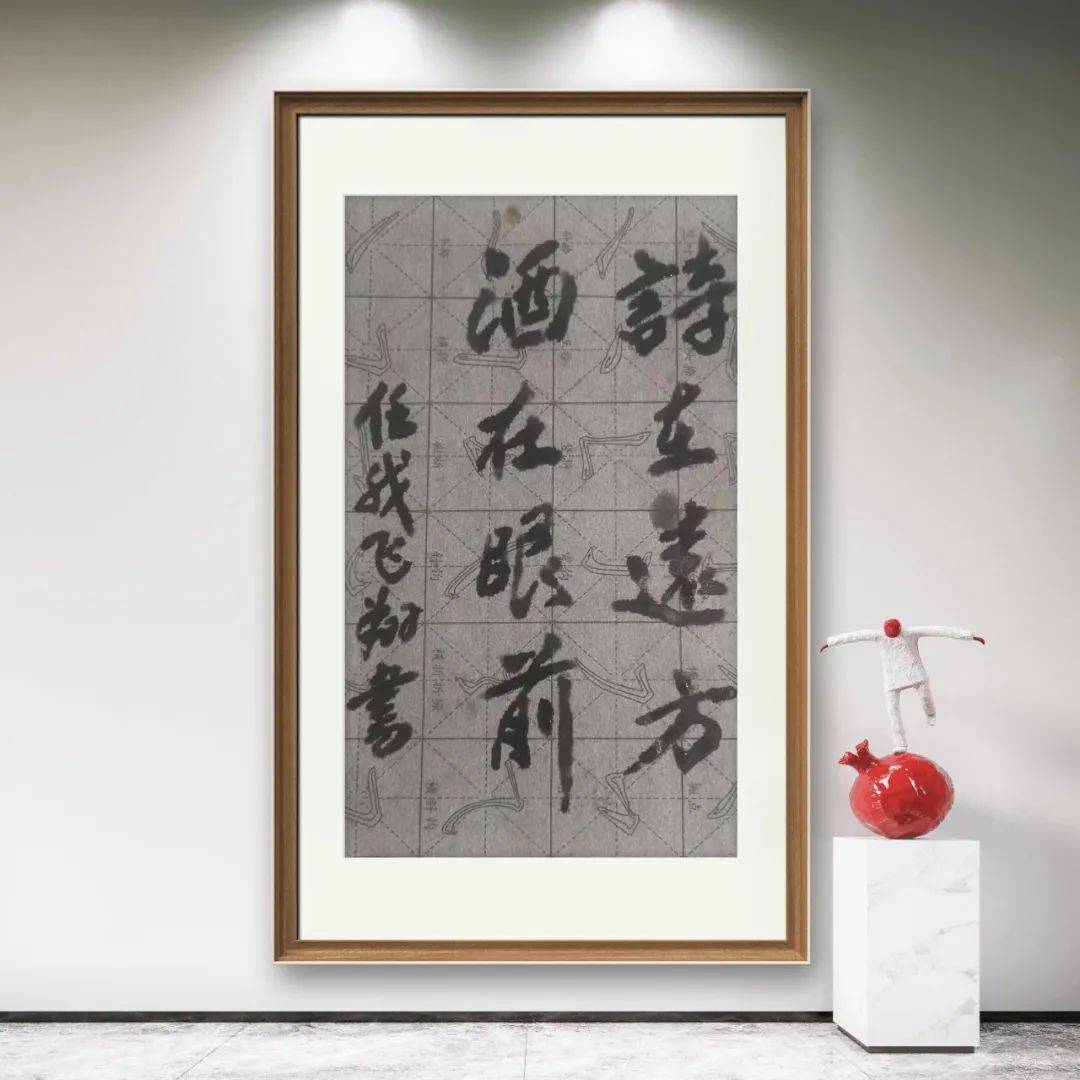 詩在遠方
酒在眼前
任我飞翔書